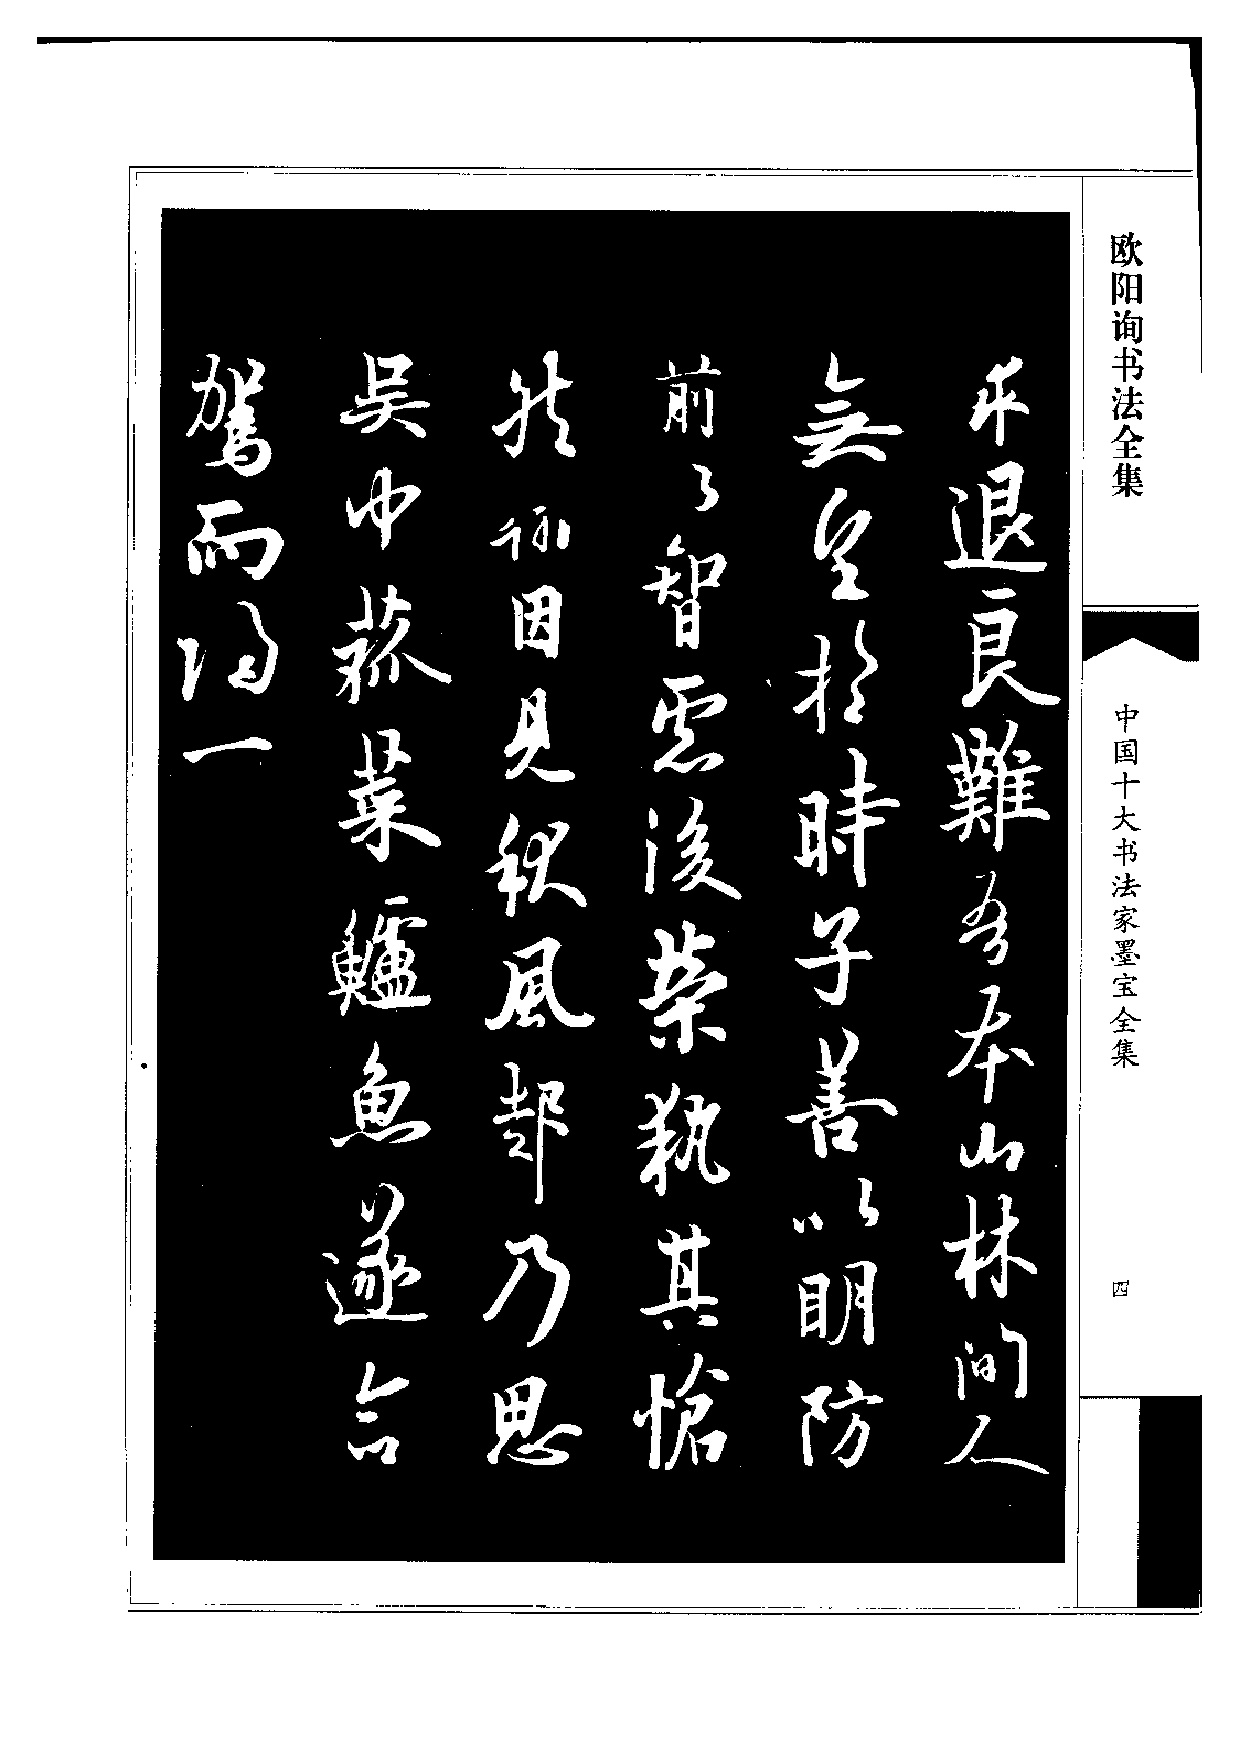 欧阳询书法全集
中国十大书法家墨宝全集
四
求退良難吾本山林間人
無望於時子善以明防
前以智慮後榮執其愴
然翰因見秋風起乃思
吳中菰菜鱸魚遂命
駕而歸一